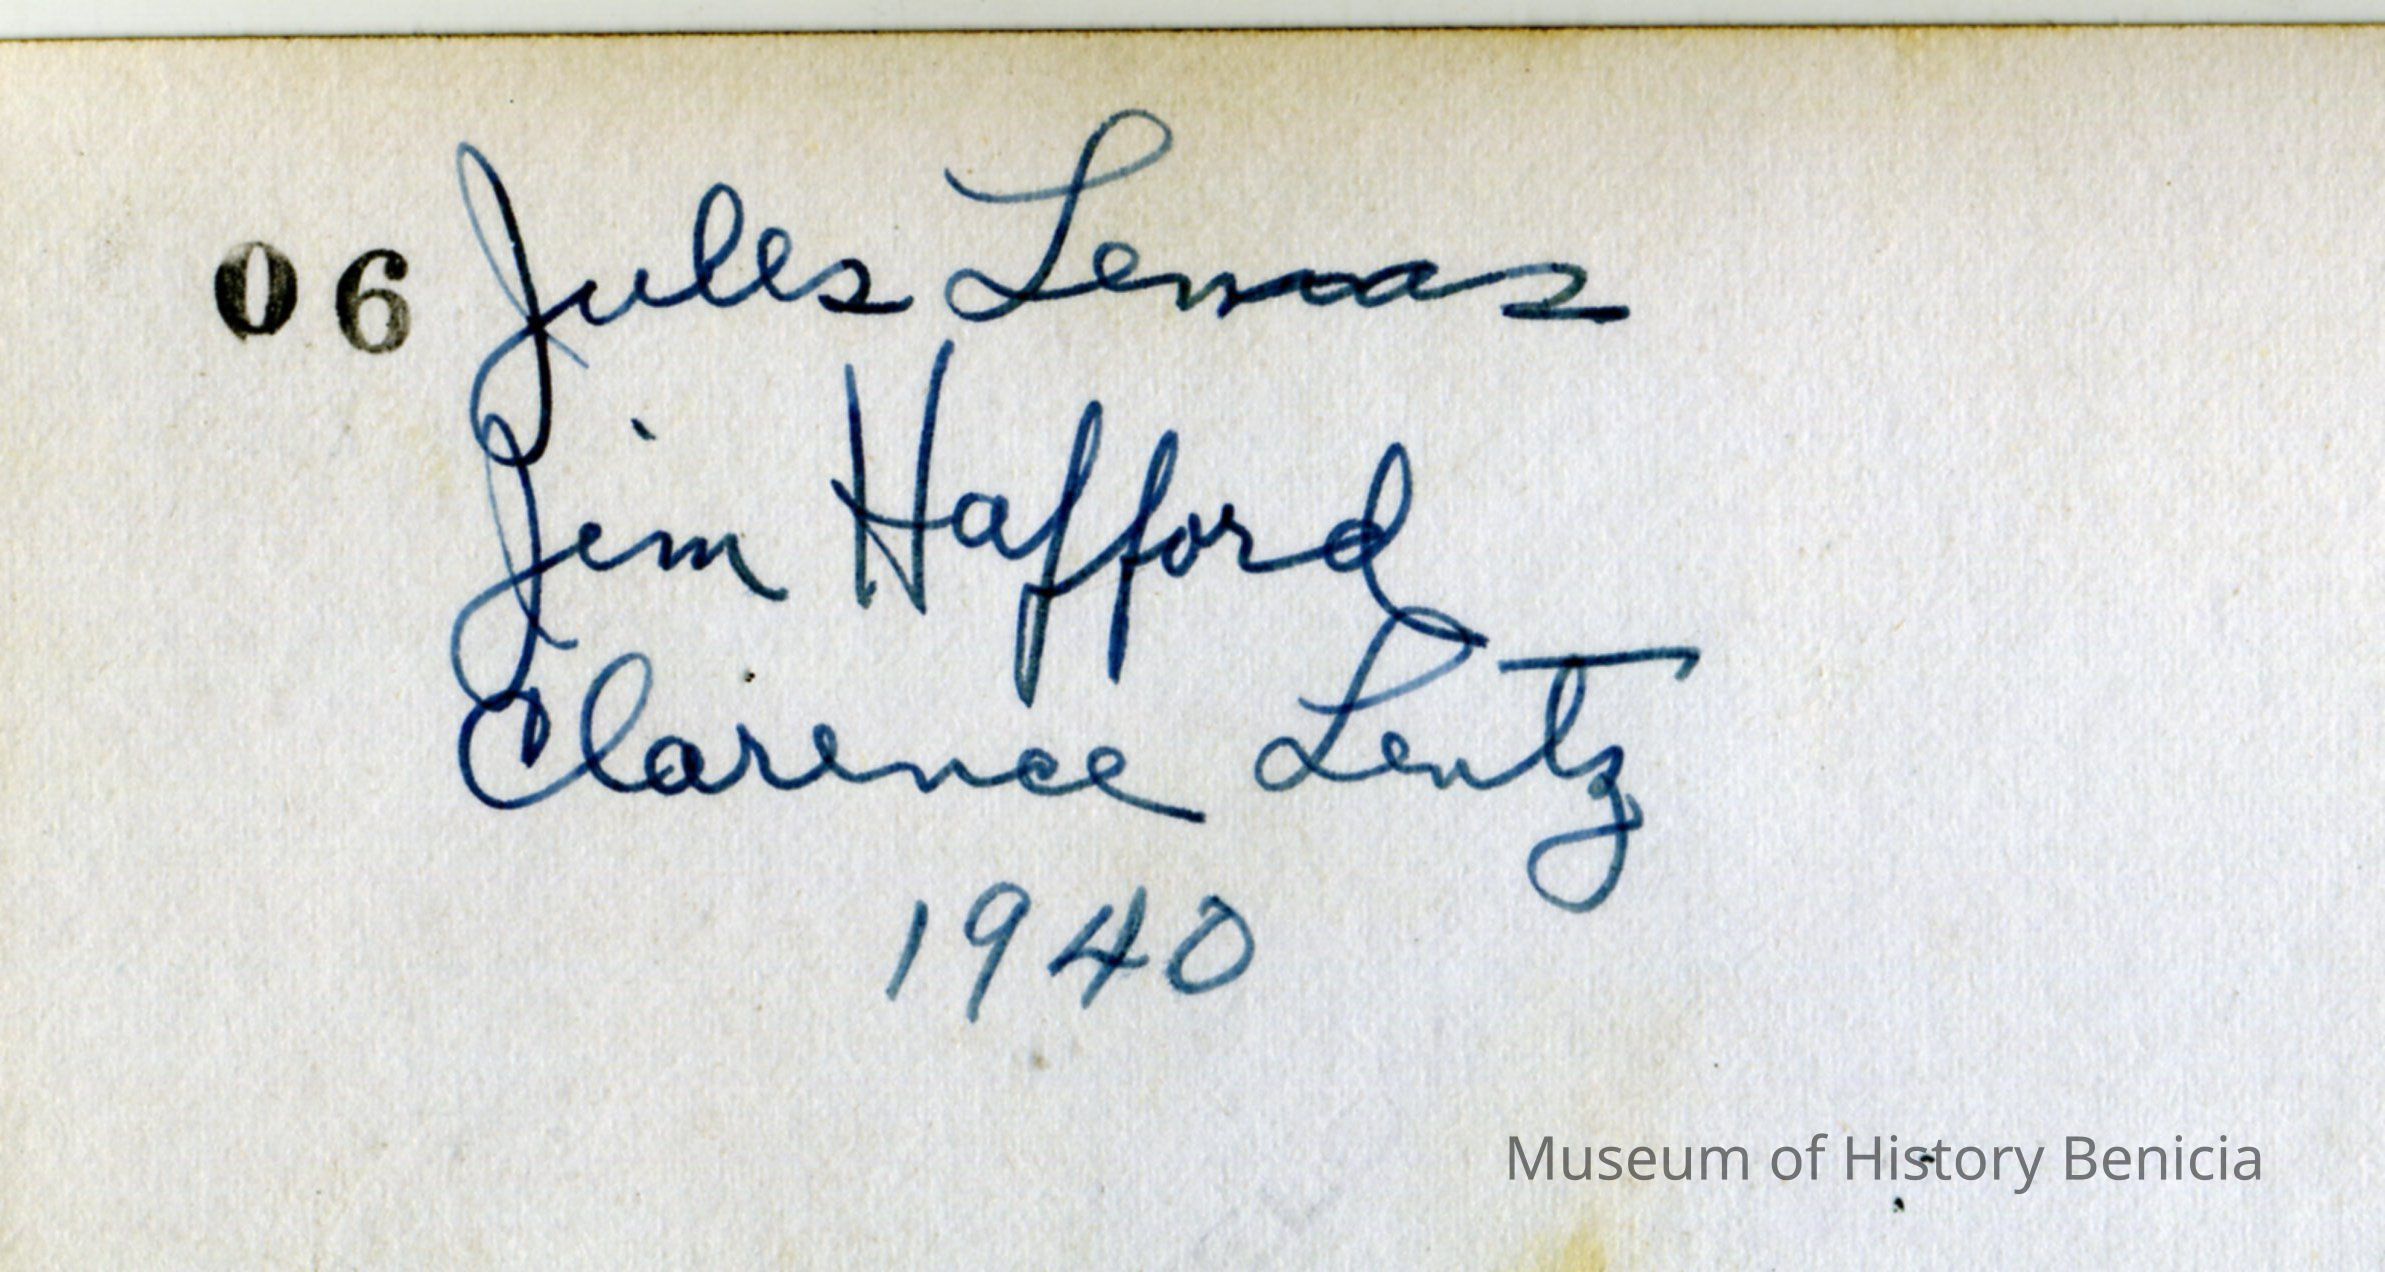 06 Jules
Jim Hafford
Clarence Lentz
1940
Museum of History Benicia